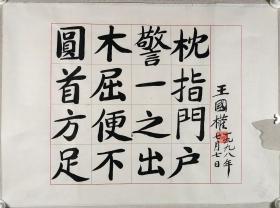 圓木警枕
首屈一指
方便之門
足不出户
王國權
一九九八年
七月七日